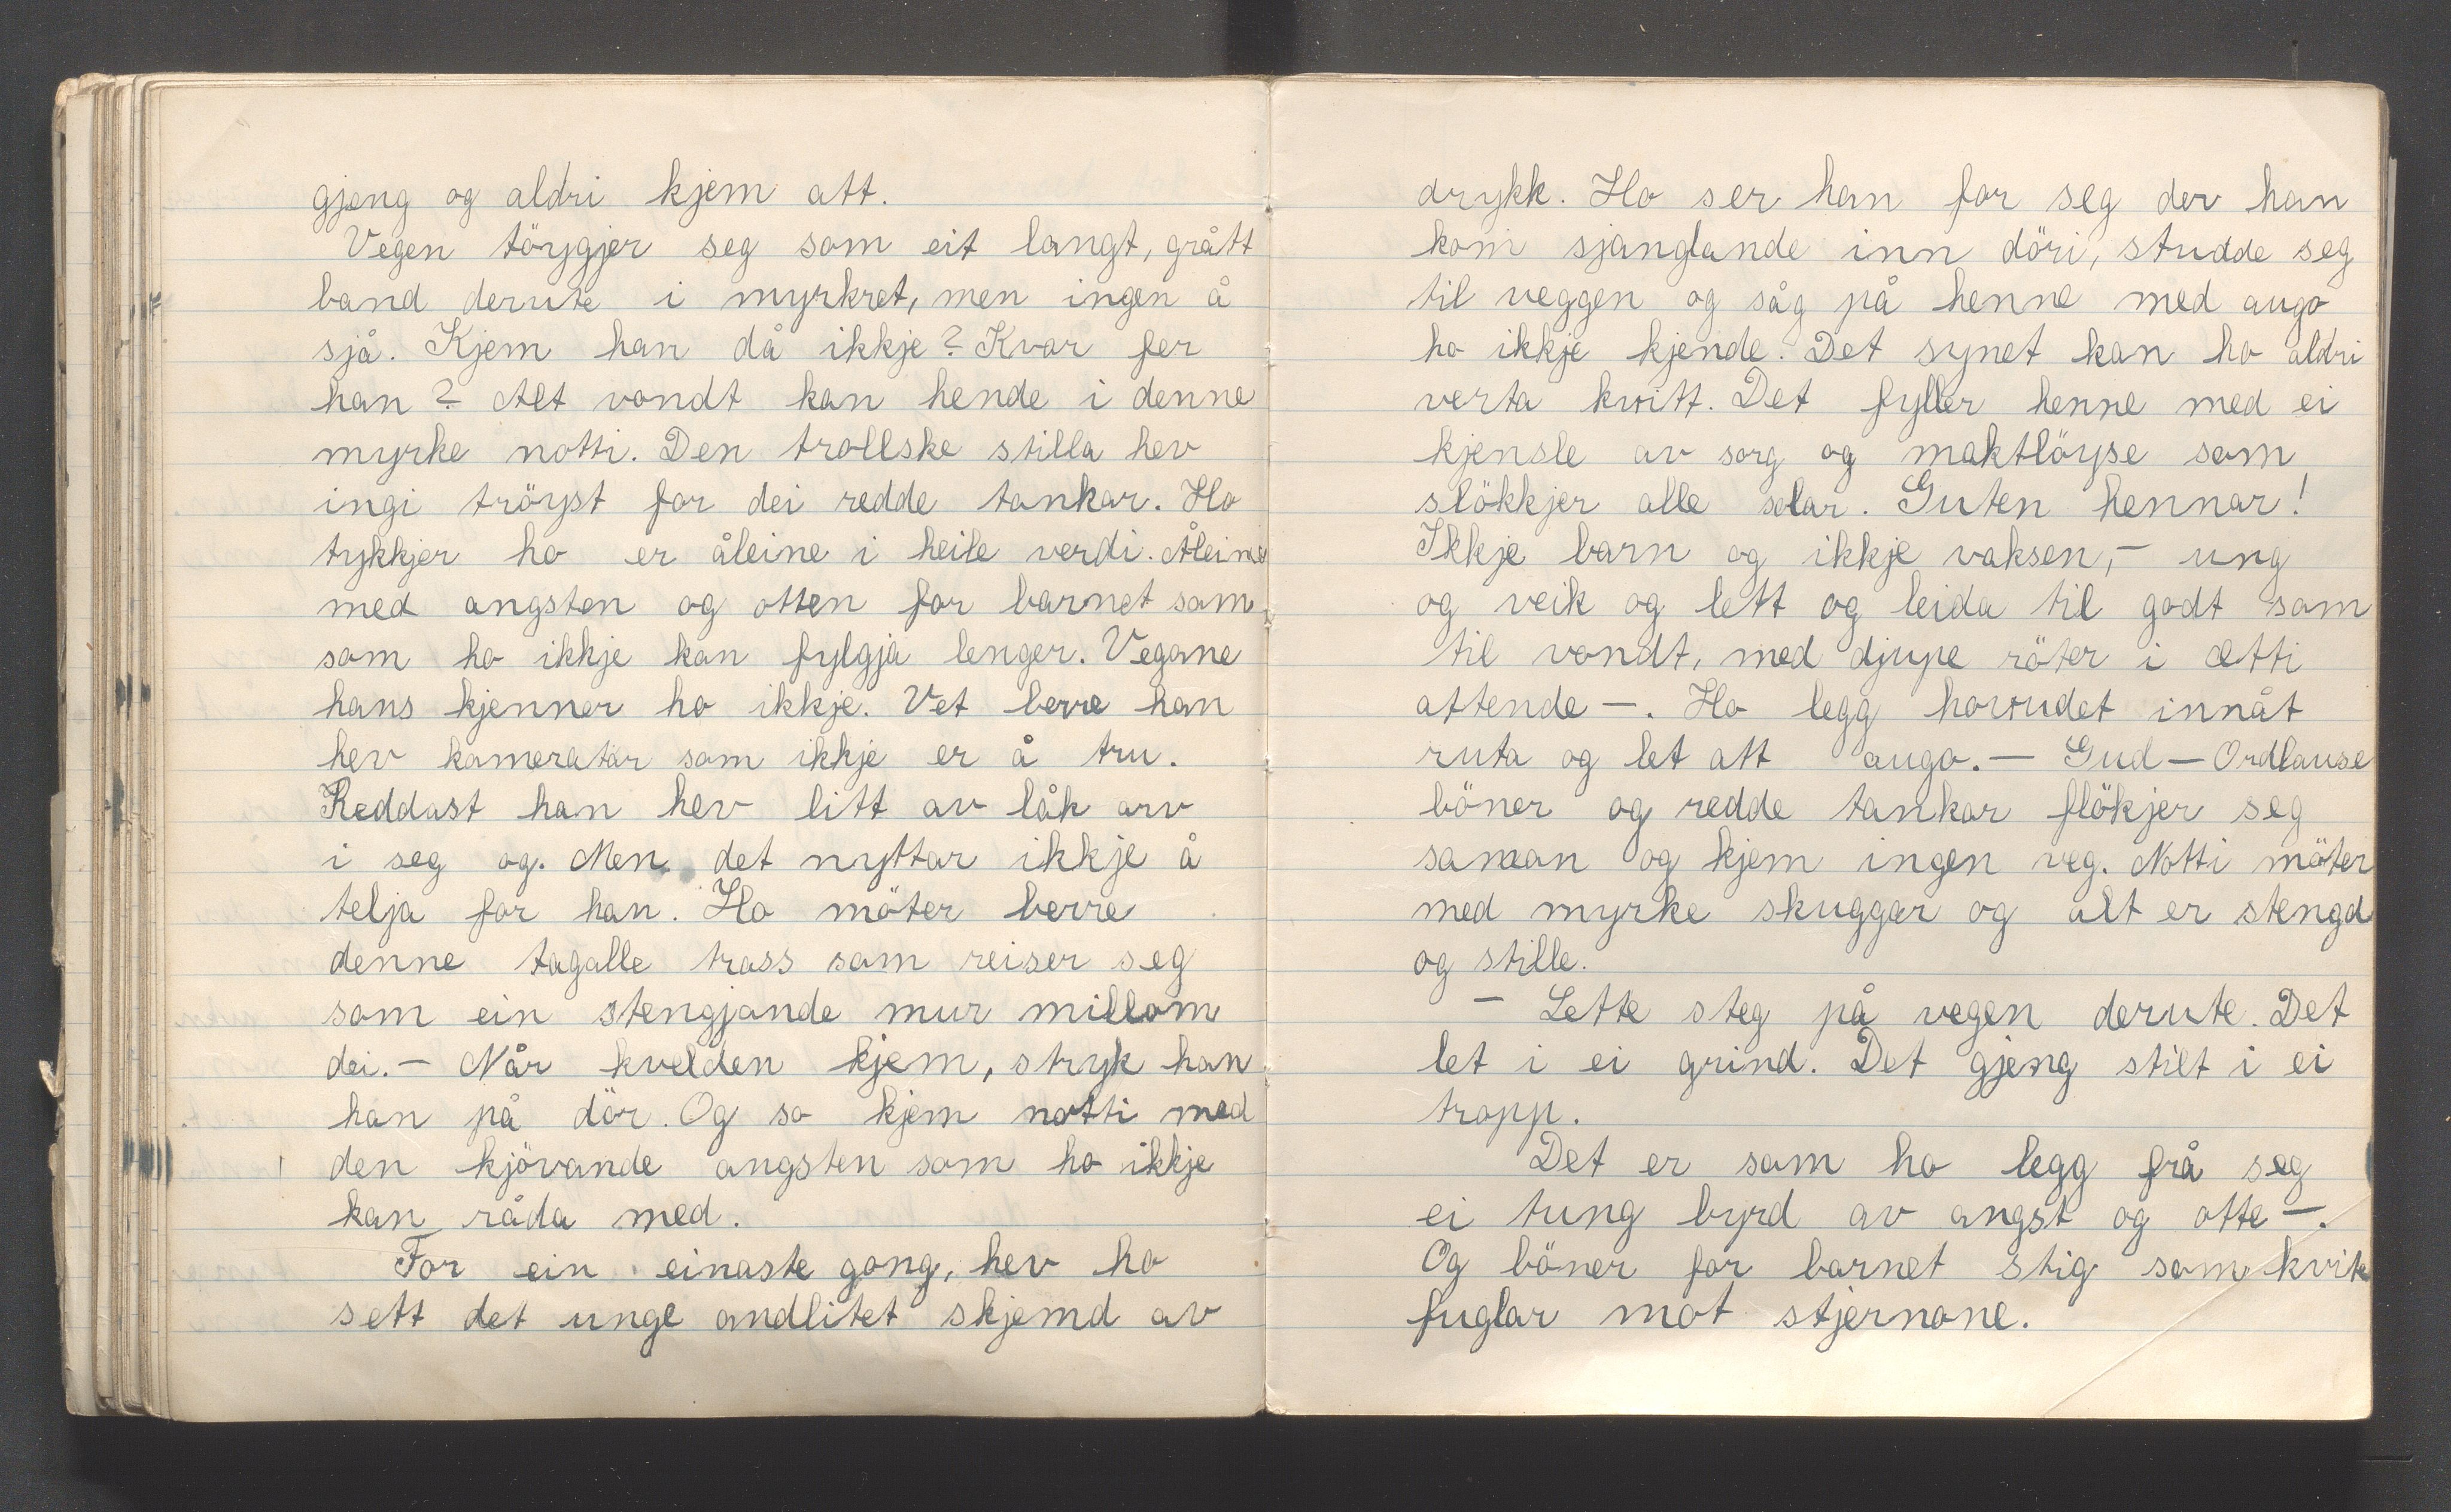 gjeng og aldri kjem att.
Vegen töygjer seg som eit langt, grått
band derute i myrkret, men ingen å
sjå. Kjem han då ikkje? Kvar fer
han? Alt vondt kan hende i denne
myrke notti. Den trollske stilla hev
ingi tröyst for dei redde tankar. Ho
tykkjer ho er åleine i heile verdi. Åleine
med angsten og otten for barnet som
som ho ikkje kan fylgja lenger. Vegane
hans kjenner ho ikkje. Vet berre han
hev kameratar som ikkje er å tru.
Reddast han hev litt av låk arv
i seg og. Men det nyttar ikkje å
telja for han. Ho möter berre
denne tagalle trass som reiser seg
som ein stengjande mur millom
dei. – Når kvelden kjem, stryk han
han på dör. Og so kjem notti med
den kjövande angsten som ho ikkje
kan råda med.
For ein einaste gong, hev ho
sett det unge andlitet skjemd av
drykk. Ho ser han for seg der han
kom sjanglande inn döri, studde seg
til veggen og såg på henne med augo
ho ikkje kjende. Det synet kan ho aldri
verta kvitt. Det fyller henne med ei
kjensle av sorg og maktlöyse som
slökkjer alle solar. Guten hennar!
Ikkje barn og ikkje vaksen, – ung
og veik og lett og leida til godt som
til vondt, med djupe röter i ætti
attende –. Ho legg hovudet innåt
ruta og let att augo. – Gud – Ordlause
böner og redde tankar flökjer seg
saman og kjem ingen veg. Notti möter
med myrke skuggar og alt er stengd
og stille.
– Lette steg på vegen derute. Det
let i ei grind. Det gjeng stilt i ei
tropp.
Det er som ho legg frå seg
ei tung byrd av angst og otte –.
Og böner for barnet stig som kvite
fuglar mot stjernone.